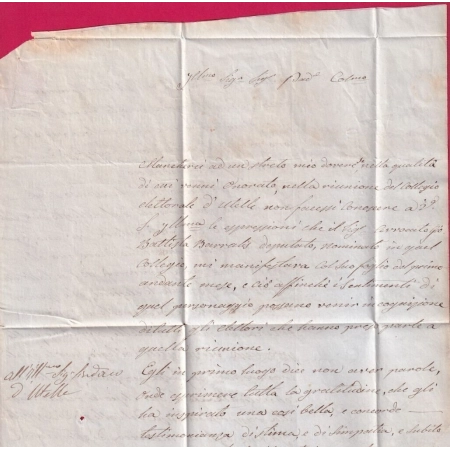 Ill.mo Sig.r Sig.r Pad.
Mancherei ad un stretto mio dovere nella qualità
di cui venni onorato, nella riunione del Collegio
elettorale d'Utelle non facessi conoscere a V.
S. Ill.ma le espressioni che il Sig.
Battista Barralis deputato, nominato in quel
Collegio, mi manifestava col suo foglio del primo
andante mese, e ciò affinchè i sentimenti di
quel personaggio possano venir in cognizione
di tutti gli elettori che hanno preso parte a
quella riunione.
All'Ill.mo Sig. Sindaco
d'Utelle
Egli in primo luogo dice non aver parole,
onde esprimere tutta la gratitudine, che gli
ha inspirato una così bella, e concorde
testimonianza di stima, e di simpatia, e subito